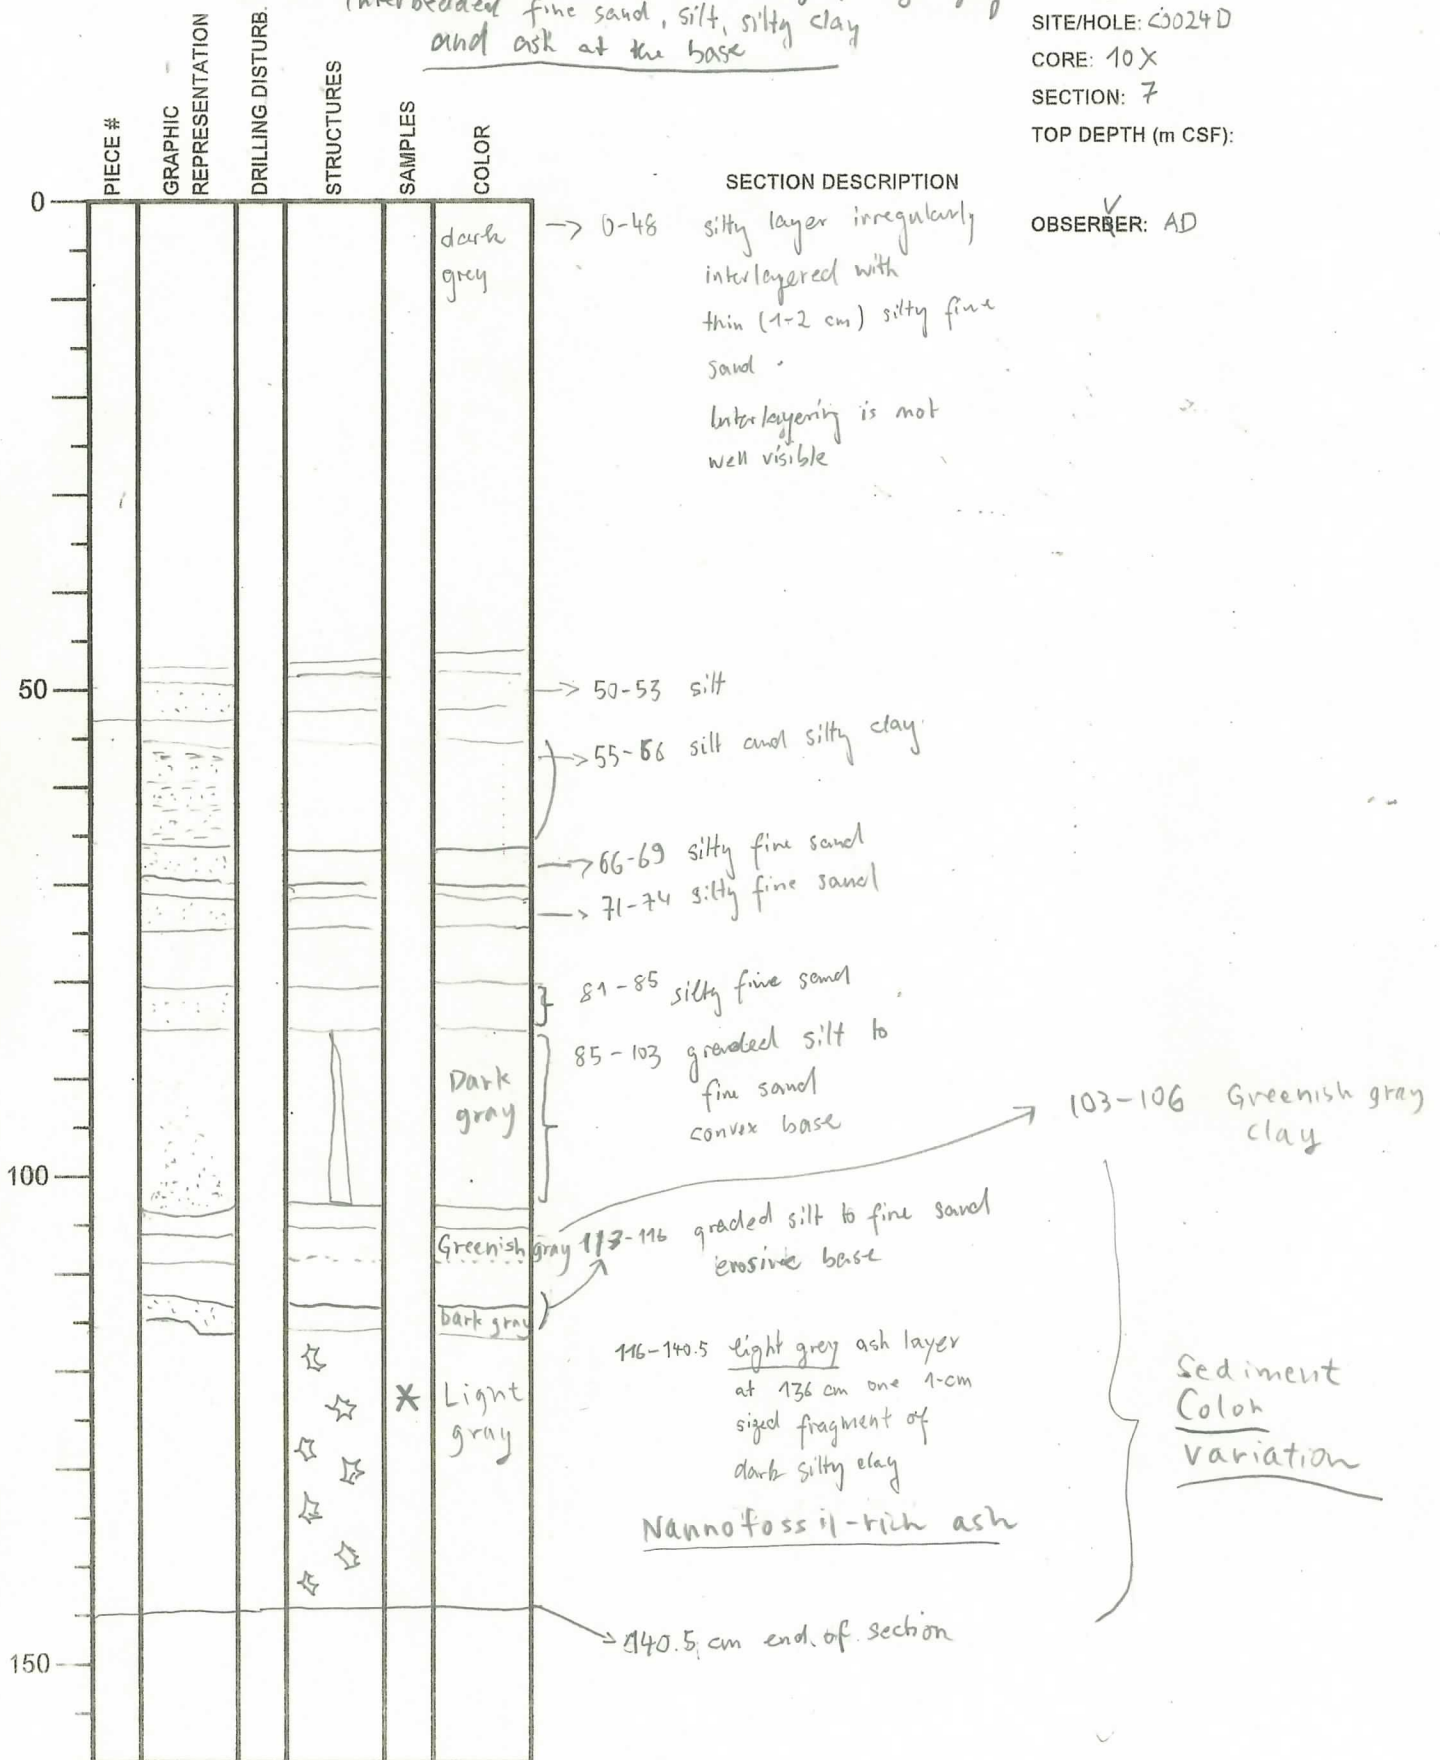 fine sand, silt, silty clay
and ash at the base
SITE/HOLE: C0024D
CORE: 10X
SECTION: 7
TOP DEPTH (m CSF):
OBSERVER: AD
PIECE #
GRAPHIC
REPRESENTATION
DRILLING DISTURB.
STRUCTURES
SAMPLES
COLOR
SECTION DESCRIPTION
0
dark
grey
0-48 silty layer irregularly
interlayered with
thin (1-2 cm) silty fine
sand.
Interlayering is not
well visible
50
50-53 silt
55-66 silt and silty clay
66-69 silty fine sand
71-74 silty fine sand
81-85 silty fine sand
85-103 graded silt to
fine sand
convex base
Dark
gray
103-106 Greenish gray
clay
100
Greenish gray
113-116 graded silt to fine sand
erosive base
Dark gray
116-140.5 light grey ash layer
at 136 cm one 1-cm
sized fragment of
dark silty clay
*
Light
gray
Nannofossil-rich ash
Sediment
Color
variation
140.5 cm end of section
150